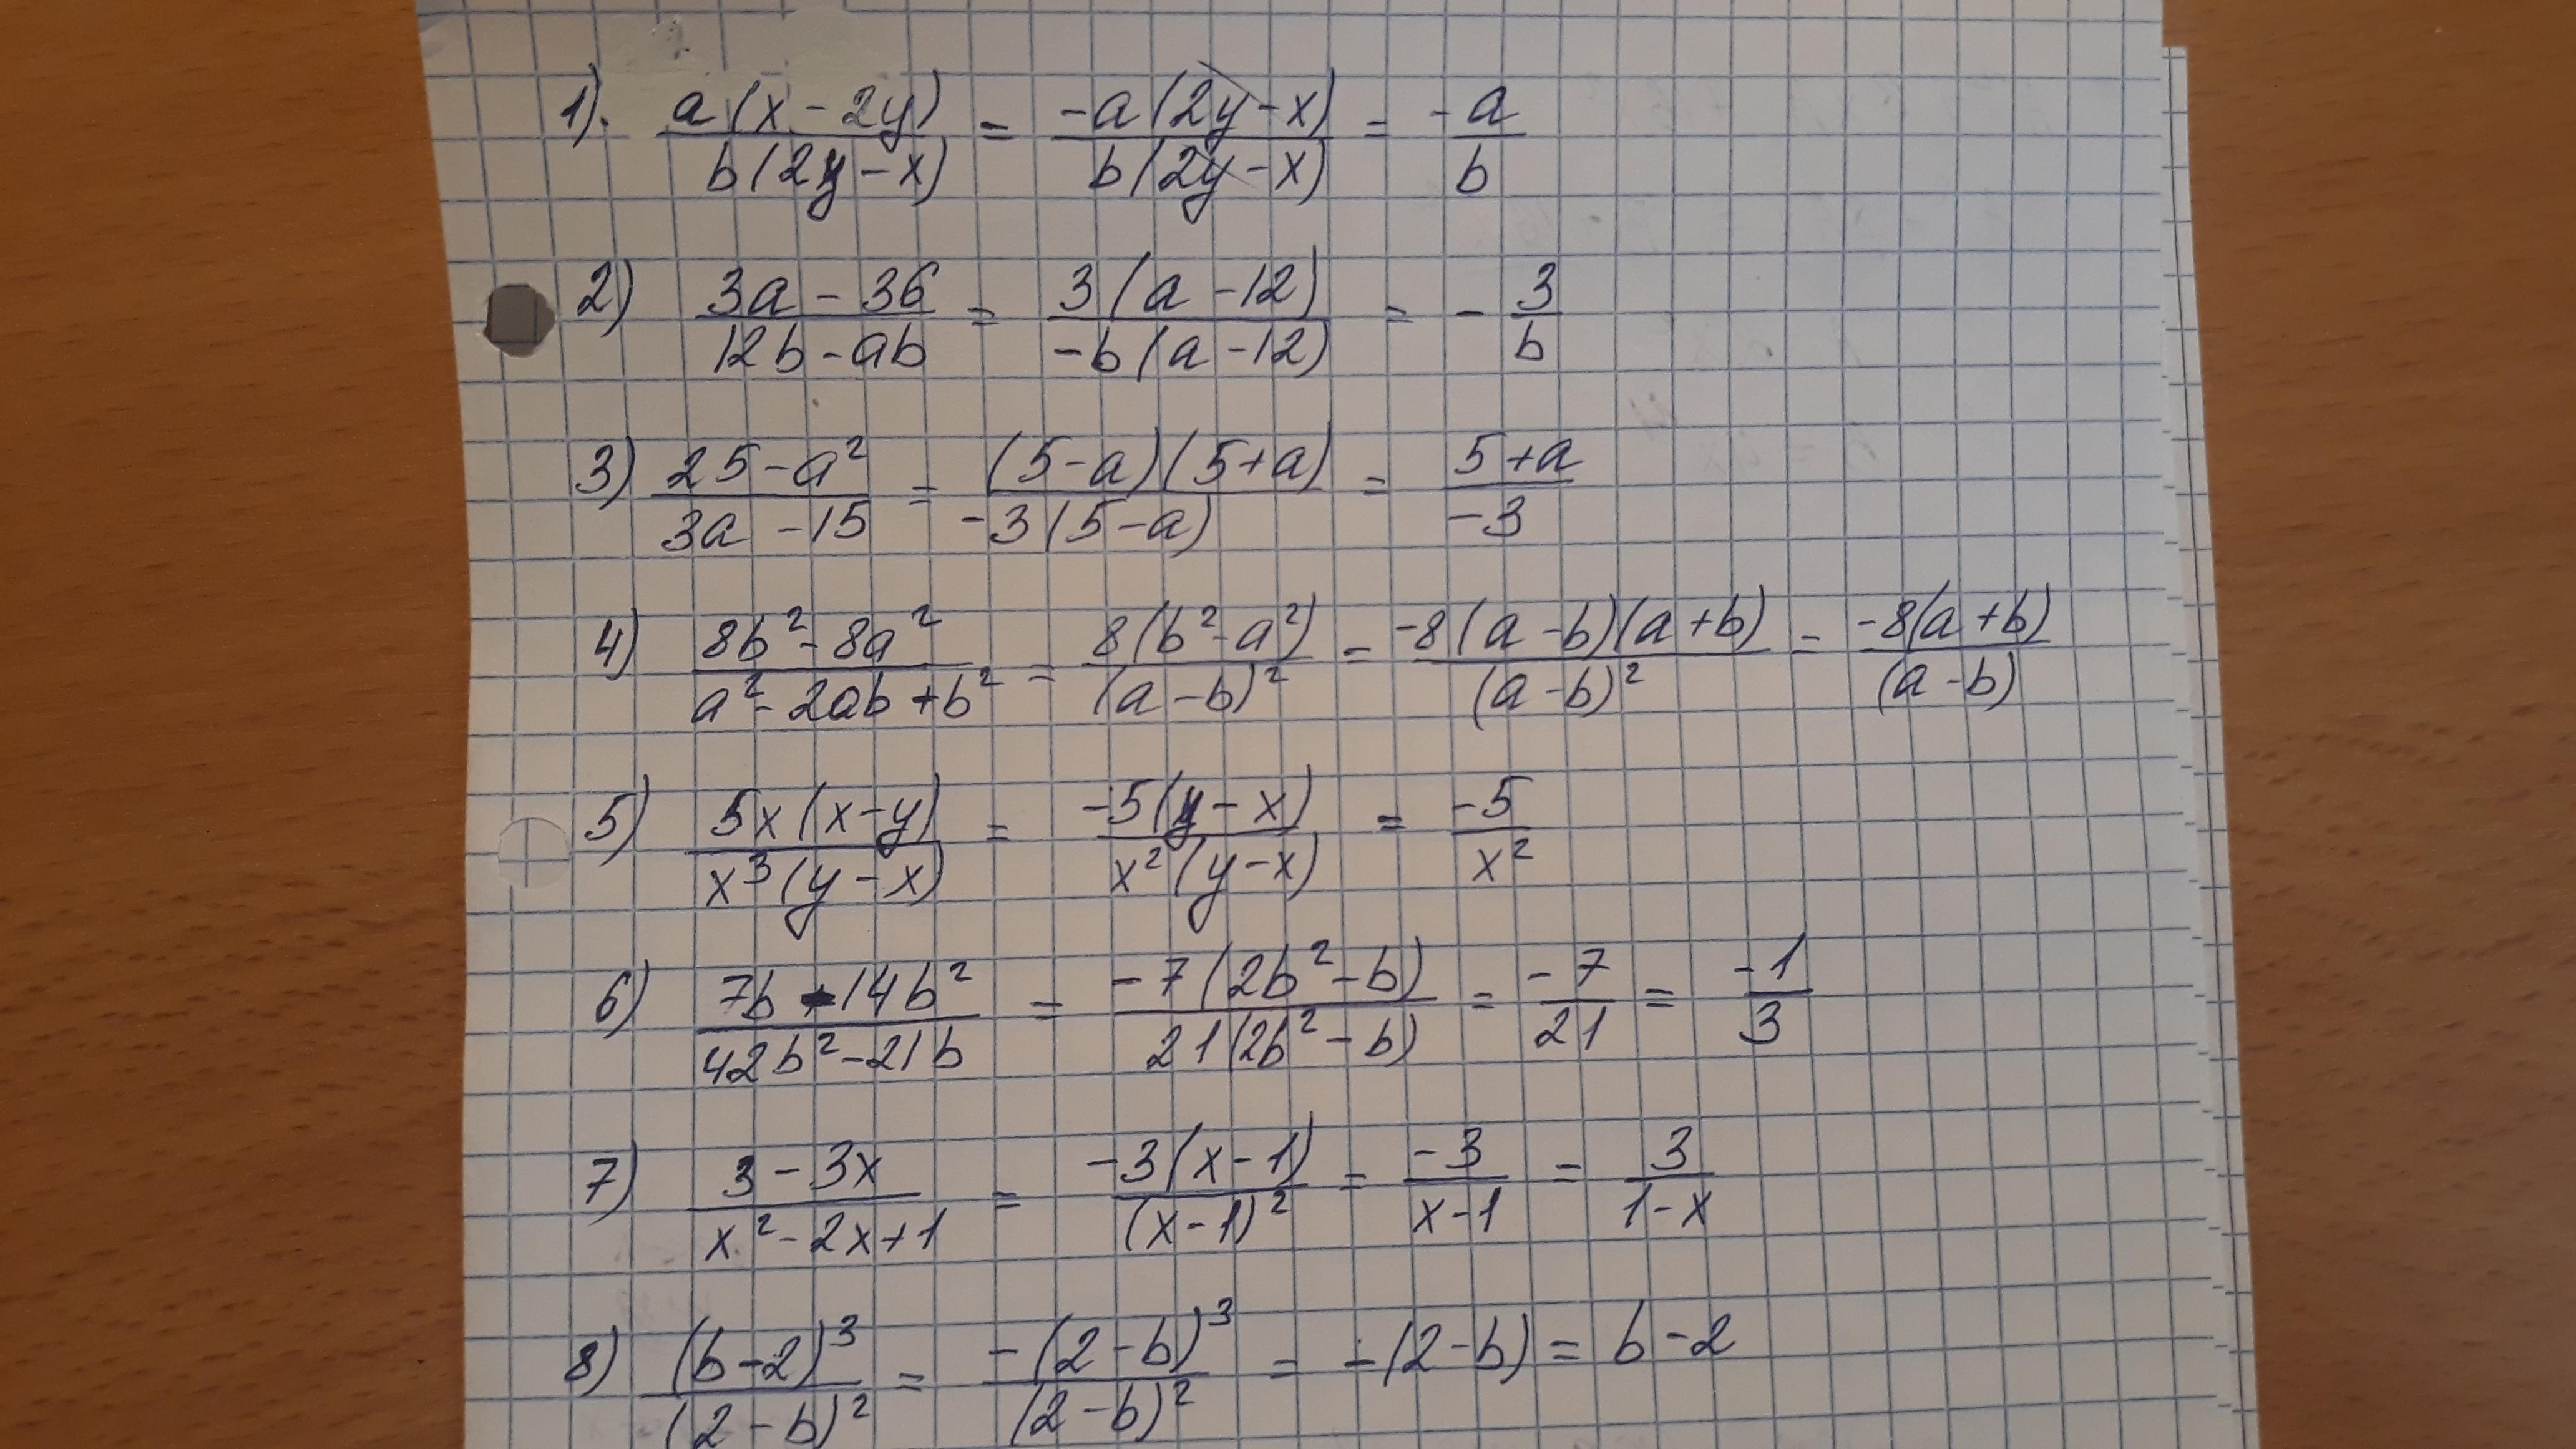 1). a(x-2y)/b(2y-x) = -a(2y-x)/b(2y-x) = -a/b
2) 3a-36/12b-ab = 3(a-12)/-b(a-12) = -3/b
3) 25-a²/3a-15 = (5-a)(5+a)/-3(5-a) = 5+a/-3
4) 8b²-8a²/a²-2ab+b² = 8(b²-a²)/(a-b)² = -8(a-b)(a+b)/(a-b)² = -8(a+b)/(a-b)
5) 5x(x-y)/x³(y-x) = -5(y-x)/x²(y-x) = -5/x²
6) 7b-14b²/42b²-21b = -7(2b²-b)/21(2b²-b) = -7/21 = -1/3
7) 3-3x/x²-2x+1 = -3(x-1)/(x-1)² = -3/x-1 = 3/1-x
8) (b-2)³/(2-b)² = -(2-b)³/(2-b)² = -(2-b) = b-2